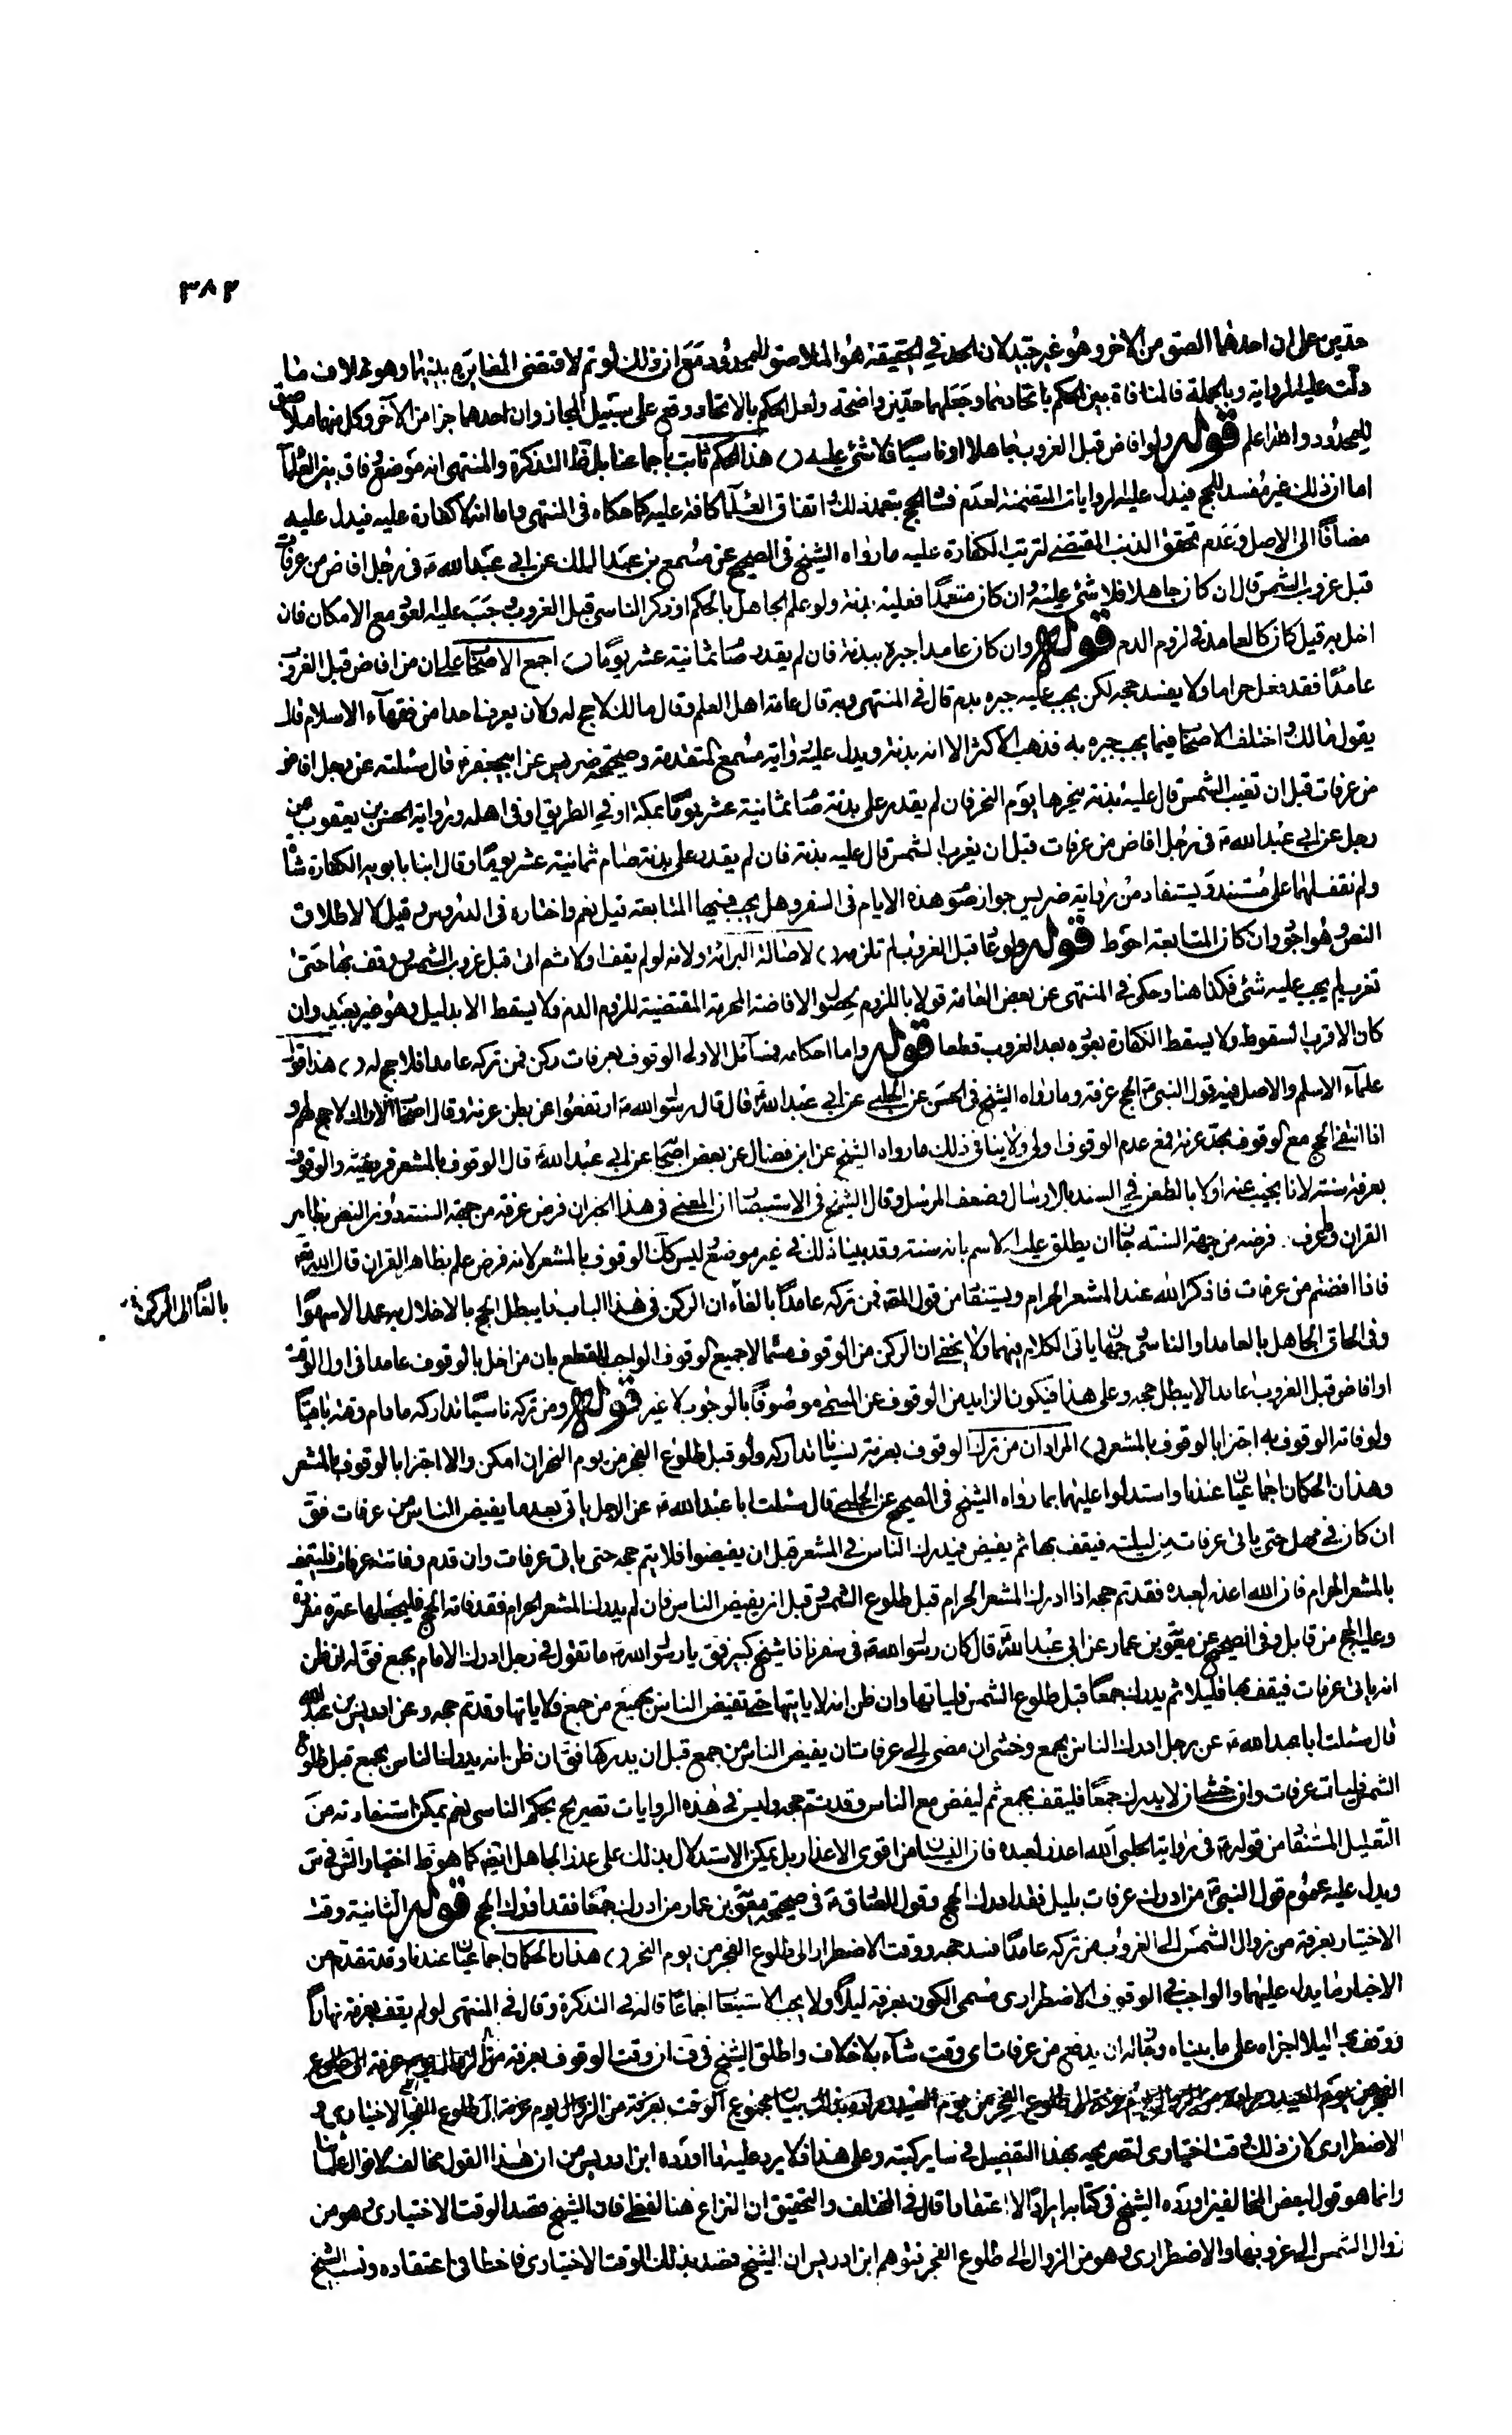 ٣٨٢
حدين على ان احدهما الصق من الاخر وهو غير جيد لان الحد في الحقيقة هو الملاصق للمحدود مع ان ذلك لو تم لاقتضى المغايرة بينهما وهو خلاف ما
دلت عليه الرواية وبالجملة فالمنافاة بين الحكم باتحادهما وجعلهما حدين واضحة ولعل الحكم بالاتحاد وقع على سبيل المجاز وان احدهما جزا من الآخر وكل منهما ملاصق
للمحدود والله اعلم قوله ولو افاض قبل الغروب جاهلا او ناسيا فلا شئ عليه هذا الحكم ثابت باجماعنا بل ظ التذكرة والمنتهى انه موضع وفاق بين العلمآ
اما ان ذلك غير مفسد للحج فيدل عليه الروايات المتضمنة لعدم فساد الحج بتعمد ذلك واتفاق العلمآ كافة عليه كما حكاه في المنتهى واما انه لا كفارة عليه فيدل عليه
مضافا الى الاصل وعدم تحقق الذنب المقتضي لترتب الكفارة عليه ما رواه الشيخ في الصحيح عن مسمع بن عبد الملك عن ابي عبد الله ع في رجل افاض من عرفات
قبل غروب الشمس قال ان كان جاهلا فلا شئ عليه وان كان متعمدا فعليه بدنة ولو علم الجاهل بالحكم او ذكر الناسي قبل الغروب وجب عليه العود مع الامكان فان
اخل به قيل كان كالعامد في لزوم الدم قوله وان كان عامدا جبره ببدنة فان لم يقدر صام ثمانية عشر يوما اجمع الاصحاب على ان من افاض قبل الغروب
عامدا فقد فعل حراما ولا يفسد حجه لكن يجب عليه جبره بدم قال في المنتهى وبه قال عامة اهل العلم وقال مالك لا حج له ولا نعرف احدا من فقهآء الاسلام قال
بقول مالك واختلف الاصحاب فيما يجب جبره به فذهب الاكثر الا انه بدنة ويدل عليه رواية مسمع المتقدمة وصحيحة ضريس عن ابيجعفر ع قال سئلته عن رجل افاض
من عرفات قبل ان تغيب الشمس قال عليه بدنة ينحرها يوم النحر فان لم يقدر على بدنة صام ثمانية عشر يوما بمكة او في الطريق او في اهله ورواية الحسن بن يعقوب عن
رجل عن ابي عبد الله ع في رجل افاض من عرفات قبل ان يغرب الشمس قال عليه بدنة فان لم يقدر على بدنة صام ثمانية عشر يوما وقال ابنا بابويه الكفارة شاة
ولم نقف لهما على مستند ويستفاد من رواية ضريس جواز صوم هذه الايام في السفر وهل يجب فيها المتابعة قيل نعم واختاره في الدروس وقيل لا لاطلاق
النص وهو اجود وان كان المتابعة احوط قوله ولو عاد قبل الغروب لم تلزمه لاصالة البرائة ولانه لو لم يقف اولا ثم اتى قبل غروب الشمس ووقف بها حتى
تغرب لم يجب عليه شئ فكذا هنا وحكى في المنتهى عن بعض العامة قولا باللزوم لحصول الافاضة المحرمة المقتضية للزوم الدم فلا يسقط الا بدليل وهو غير بعيد وان
كان الاقرب السقوط ولا يسقط الكفارة بعوده بعد الغروب قطعا قوله واما احكامه فمسآئل الاولى الوقوف بعرفات ركن فمن تركه عامدا فلا حج له هذا قول
علمآء الاسلم والاصل فيه قول النبي ص الحج عرفة وما رواه الشيخ في الحسن عن الحلبي عن ابي عبد الله ع قال قال رسول الله ص ارتفعوا عن بطن عرنة وقال اصحاب الاراك لا حج لهم و
اذا انتفى الحج مع الوقوف بحد عرفة فمع عدم الوقوف اولى ولا ينافي ذلك ما رواه الشيخ عن ابن فضال عن بعض اصحابنا عن ابي عبد الله ع قال الوقوف بالمشعر فريضة والوقوف
بعرفة سنة لانا نجيب عنه اولا بالطعن في السند بالارسال وضعف المرسل وقال الشيخ في الاستبصار ان المعنى في هذا الخبر ان فرض عرفة من جهة السنة دون النص بظاهر
القران وعرف فرضه من جهة السنة جاز ان يطلق عليه الاسم بانه سنة وقد بينا ذلك في غير موضع وليس كك الوقوف بالمشعر لانه فرض علم بظاهر القران قال الله تعالى
فاذا افضتم من عرفات فاذكر الله عند المشعر الحرام ويستفاد من قول المصنف فمن تركه عامدا بالفآء ان الركن في هذا الباب ما يبطل الحج بالاخلال به عمدا لا سهوا
وفي الحاق الجاهل بالعامد او الناسي وجهان ياتي الكلام فيهما ولا يخفى ان الركن من الوقوف مسماه لا جميع الوقوف الواجب للقطع بان من اخل بالوقوف عامدا في اول الوقت
او افاض قبل الغروب عامدا لا يبطل حجه وعلى هذا فيكون الزايد من الوقوف عن المسمى موصوفا بالوجوب لا غير قوله ومن تركه ناسيا تداركه ما دام وقته باقيا
ولو فاته الوقوف به اجتزا بالوقوف بالمشعر المراد ان من ترك الوقوف بعرفة نسيانا تداركه ولو قبل طلوع الفجر من يوم النحر ان امكن والا اجتزا بالوقوف بالمشعر
وهذان الحكمان اجماعيان عندنا واستدلوا عليهما بما رواه الشيخ في الصحيح عن الحلبي قال سئلت ابا عبد الله ع عن الرجل ياتي بعد ما يفيض الناس من عرفات فق
ان كان في مهل حتى ياتي عرفات من ليلته فيقف بها ثم يفيض فيدرك الناس في المشعر قبل ان يفيضوا فلا يتم حجه حتى ياتي عرفات وان قدم وفاتته عرفات فليقف
بالمشعر الحرام فان الله اعذر لعبده فقد تم حجه اذا ادرك المشعر الحرام قبل طلوع الشمس وقبل ان يفيض الناس فان لم يدرك المشعر الحرام فقد فاته الحج فليجعلها عمرة مفردة
وعليه الحج من قابل وفي الصحيح عن معوية بن عمار عن ابي عبد الله ع قال كان رسول الله ص في سفر فاذا شيخ كبير فق يا رسول الله ص ما تقول في رجل ادرك الامام بجمع فق له ان ظن
انه ياتي عرفات فيقف بها قليلا ثم يدرك جمعا قبل طلوع الشمس فلياتها وان ظن انه لا ياتيها حتى تفيض الناس بجمع من جمع فلا ياتها وقد تم حجه وعن ادريس بن عبد الله
قال سئلت ابا عبد الله ع عن رجل ادرك الناس بجمع وخشى ان مضى الى عرفات ان يفيض الناس من جمع قبل ان يدركها فق ان ظن انه يدرك الناس بجمع قبل طلوع
الشمس فليات عرفات وان خشى ان لا يدرك جمعا فليقف بجمع ثم ليفض مع الناس وقد تم حجه وليس في هذه الروايات تصريح بحكم الناسي نعم يمكن استفادته من
التعليل المستفاد من قوله ع في رواية الحلبي الله اعذر لعبده فان النسيان من اقوى الاعذار بل يمكن الاستدلال بذلك على عذر الجاهل ايضا كما هو ظ اختيار الش في س
ويدل عليه عموم قول النبي ص من ادرك عرفات بليل فقد ادرك الحج وقول الصادق ع في صحيحة معوية بن عمار من ادرك جمعا فقد ادرك الحج قوله الثانية وقت
الاختيار بعرفة من زوال الشمس الى الغروب من تركه عامدا فسد حجه ووقت الاضطرار الى طلوع الفجر من يوم النحر هذان الحكمان اجماعيان عندنا وقد تقدم من
الاخبار ما يدل عليهما والواجب في الوقوف الاضطراري مسمى الكون بعرفة ليلا ولا يجب الاستيعاب اجماعا قاله في التذكرة وقال في المنتهى لو لم يقف بعرفة نهارا
ووقف بها ليلا اجزاه على ما بيناه وجاز له ان يدفع من عرفات اي وقت شآء بلا خلاف واطلق الشيخ في ف ان وقت الوقوف بعرفة من الزوال يوم عرفة الى طلوع
الفجر من يوم العيد مجموع الوقت بعرفة من الزوال يوم عرفة الى طلوع الفجر الاختياري و
الاضطراري لا ان ذلك وقت اختياري لتصريحه بهذا التفصيل في ساير كتبه وعلى هذا فلا يرد عليه ما اورده ابن ادريس من ان هذا القول مخالف لاقوال علمائنا
وانما هو قول لبعض المخالفين اورده الشيخ في كتابه ايرادا لا اعتقادا قال في المختلف والتحقيق ان النزاع هنا لفظي فان الشيخ قصد الوقت الاختياري وهو من
زوال الشمس الى غروبها والاضطراري وهو من الزوال الى طلوع الفجر فتوهم ابن ادريس ان الشيخ قصد بذلك الوقت الاختياري فاخطا في اعتقاده ونسب الشيخ